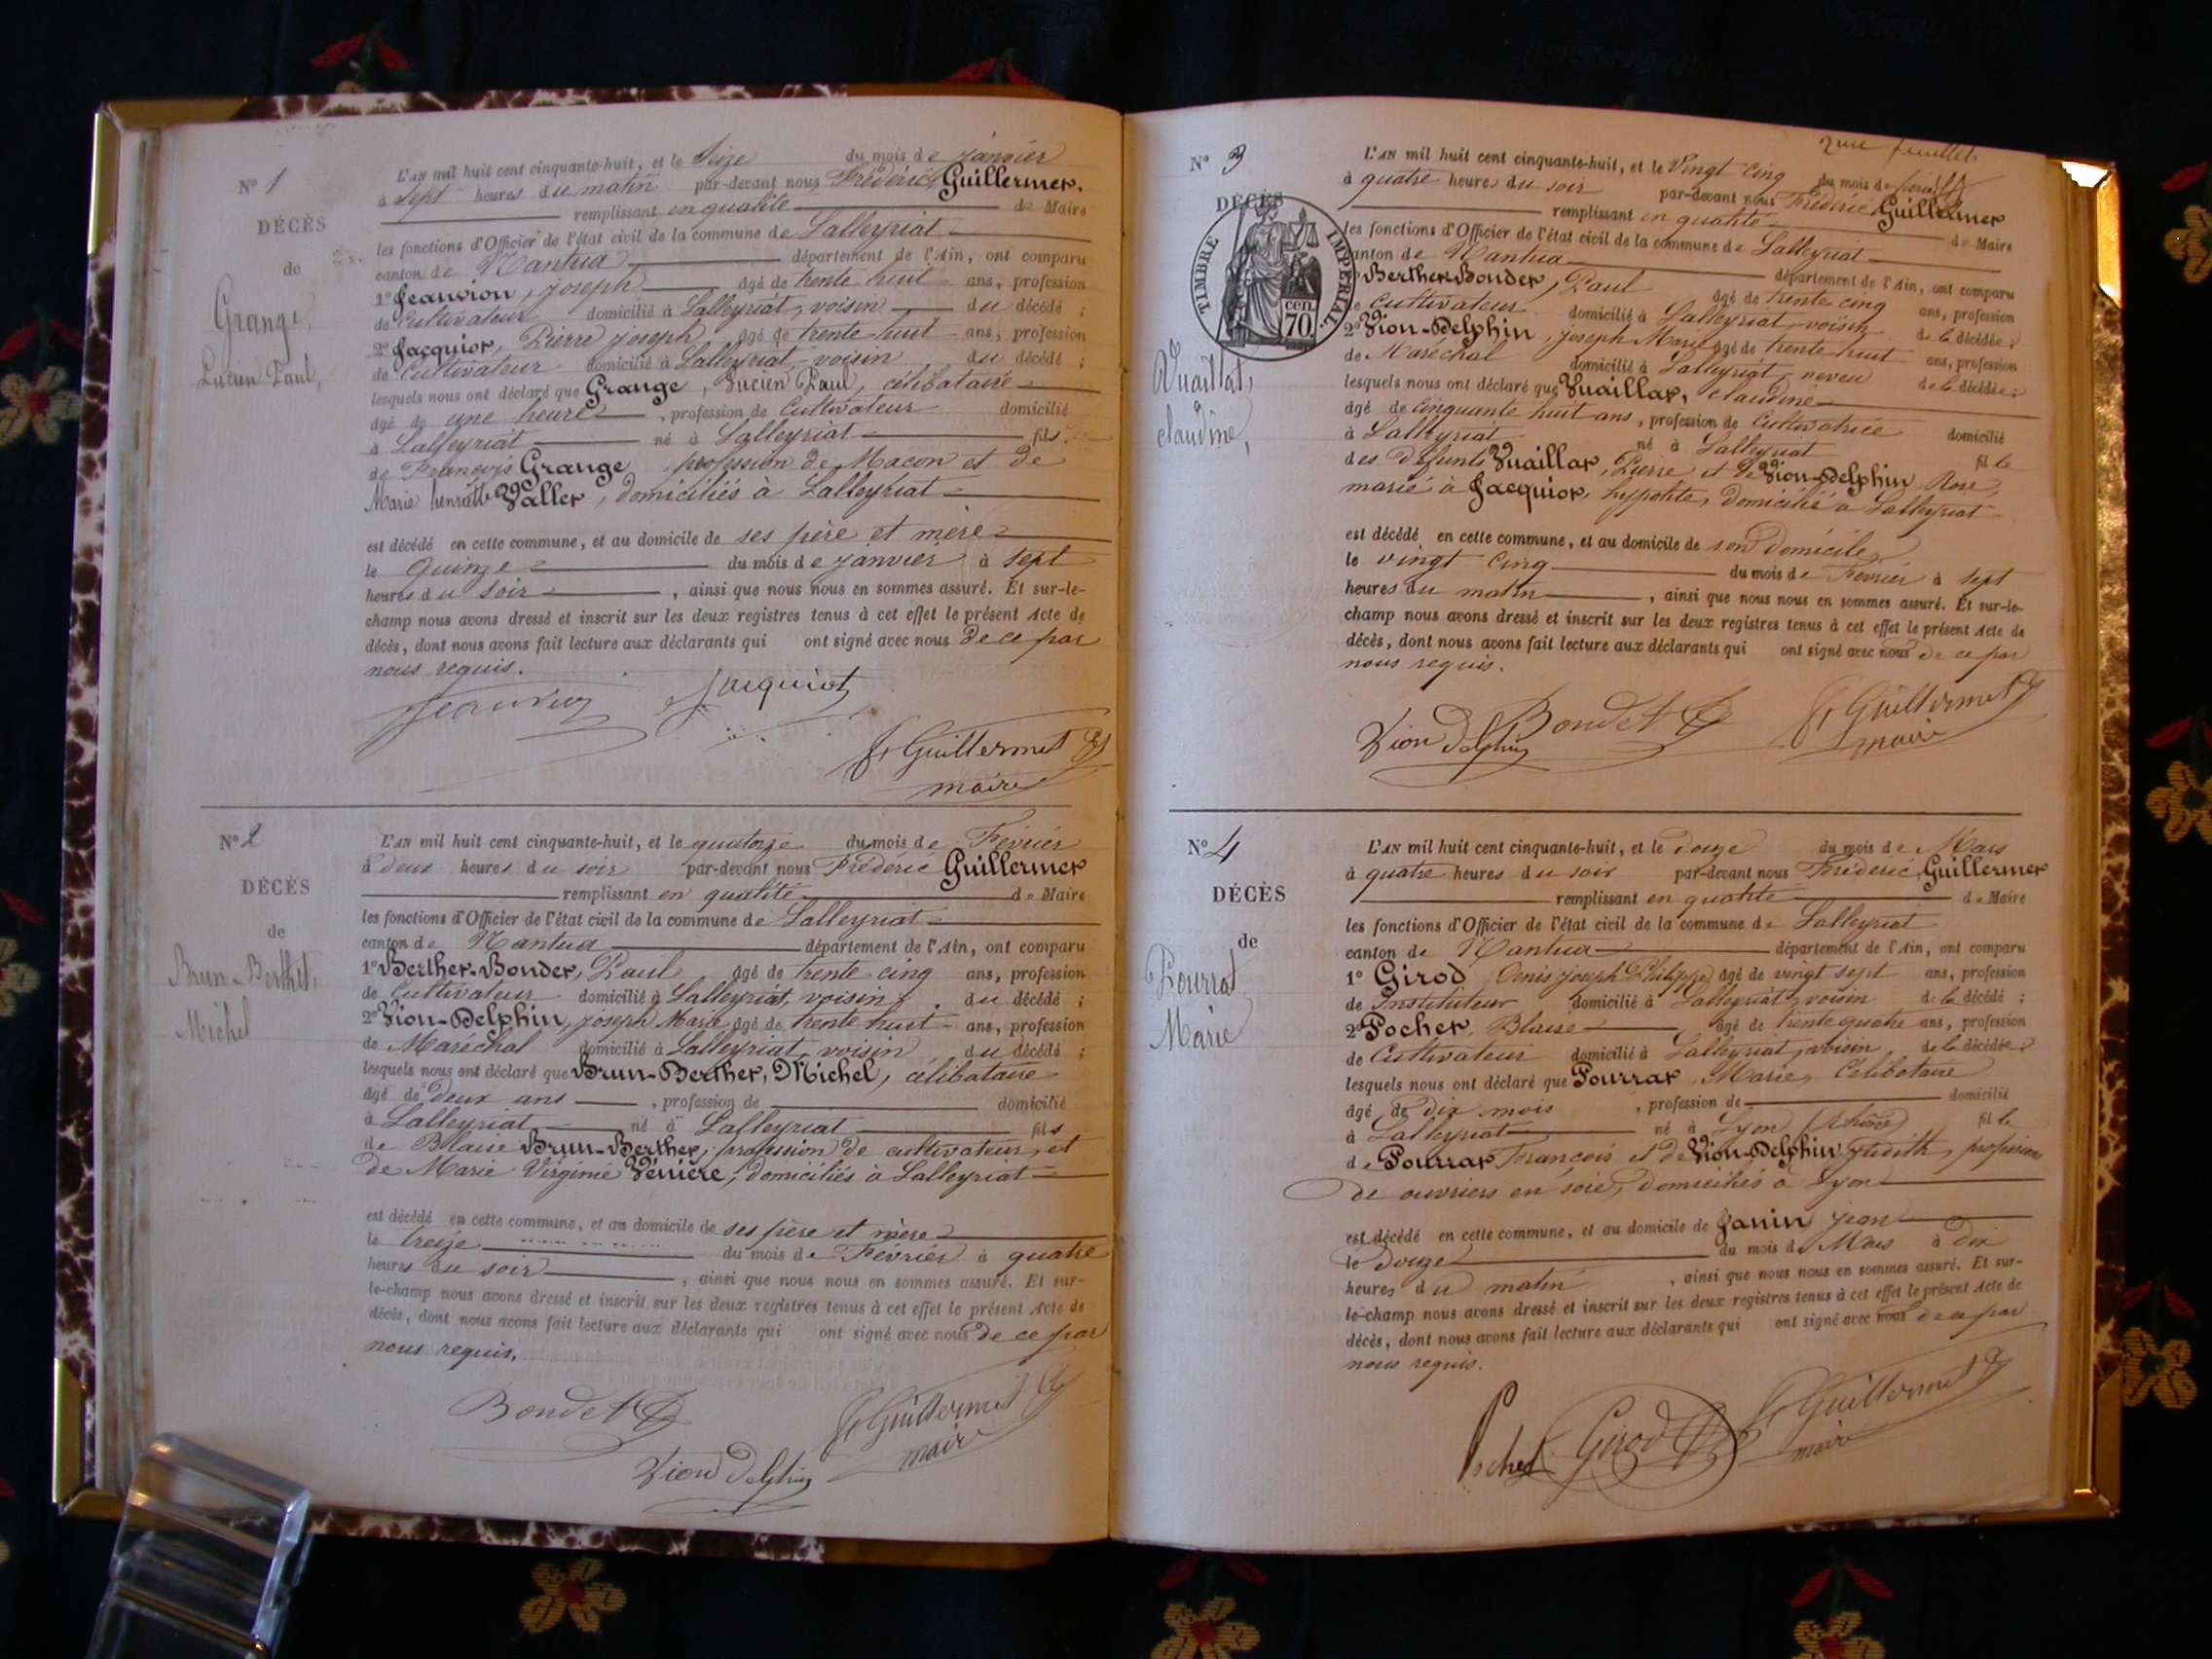 N° 1
DÉCÈS
de
Grange,
Lucien Paul,
L'AN mil huit cent cinquante-huit, et le Seize du mois de janvier
à Sept heures du matin par-devant nous Frédéric Guillermet.
remplissant en qualité de Maire
les fonctions d'Officier de l'état civil de la commune de Lalleyriat
canton de Nantua département de l'Ain, ont comparu
1° Jeanvion, joseph âgé de trente huit ans, profession
de Cultivateur domicilié à Lalleyriat, voisin du décédé ;
2° Jacquiot, Pierre joseph âgé de trente-huit ans, profession
de Cultivateur domicilié à Lalleyriat, voisin du décédé ;
lesquels nous ont déclaré que Grange, Lucien Paul, célibataire
âgé de une heure, profession de Cultivateur domicilié
à Lalleyriat né à Lalleyriat fils
de François Grange, profession de Macon et de
Marie henriette Vallet, domiciliés à Lalleyriat
est décédé en cette commune, et au domicile de ses père et mère
le Quinze du mois de janvier à sept
heures du soir, ainsi que nous nous en sommes assuré. Et sur-le-
champ nous avons dressé et inscrit sur les deux registres tenus à cet effet le présent Acte de
décès, dont nous avons fait lecture aux déclarants qui ont signé avec nous de ce par
nous requis.
Jeanvion Jacquiot
Fr Guillermet
maire
N° 2
DÉCÈS
de
Brun-Berthet,
Michel
L'AN mil huit cent cinquante-huit, et le quatorze du mois de Février
à deux heures du soir par-devant nous Frédéric Guillermet
remplissant en qualité de Maire
les fonctions d'Officier de l'état civil de la commune de Lalleyriat
canton de Nantua département de l'Ain, ont comparu
1° Berthet-Bondet, Paul âgé de trente cinq ans, profession
de Cultivateur domicilié à Lalleyriat, voisin du décédé ;
2° Vion-Delphin, joseph Marie âgé de trente huit ans, profession
de Maréchal domicilié à Lalleyriat, voisin du décédé ;
lesquels nous ont déclaré que Brun-Berthet, Michel, célibataire
âgé de deux ans, profession de domicilié
à Lalleyriat né à Lalleyriat fils
de Blaise Brun-Berthet, profession de cultivateur, et
de Marie Virginie Vénière, domiciliés à Lalleyriat
est décédé en cette commune, et au domicile de ses père et mère
le treize du mois de Février à quatre
heures du soir, ainsi que nous nous en sommes assuré. Et sur-
le-champ nous avons dressé et inscrit sur les deux registres tenus à cet effet le présent Acte de
décès, dont nous avons fait lecture aux déclarants qui ont signé avec nous de ce par
nous requis.
Bondet Fr Guillermet
Vion Delphin maire
2me feuillet.
N° 3
DÉCÈS
TIMBRE IMPÉRIAL.
70 cen
Vuaillat,
claudine,
L'AN mil huit cent cinquante-huit, et le Vingt cinq du mois de février
à quatre heures du soir par-devant nous Frédéric Guillermet
remplissant en qualité de Maire
les fonctions d'Officier de l'état civil de la commune de Lalleyriat
canton de Nantua département de l'Ain, ont comparu
Berthet-Bondet, Paul âgé de trente cinq ans, profession
de Cultivateur domicilié à Lalleyriat, voisin de la décédée ;
2° Vion-Delphin, joseph Marie âgé de trente huit ans, profession
de Maréchal domicilié à Lalleyriat, neveu de la décédée ;
lesquels nous ont déclaré que Vuaillat, claudine
âgé de cinquante huit ans, profession de Cultivatrice domicilié
à Lalleyriat né à Lalleyriat fille
des défunts Vuaillat, Pierre et de Vion-Delphin Rose,
marié à Jacquiot, hypolite, domicilié à Lalleyriat
est décédé en cette commune, et au domicile de son domicile,
le vingt cinq du mois de Février à sept
heures du matin, ainsi que nous nous en sommes assuré. Et sur-le-
champ nous avons dressé et inscrit sur les deux registres tenus à cet effet le présent Acte de
décès, dont nous avons fait lecture aux déclarants qui ont signé avec nous de ce par
nous requis.
Vion Delphin Bondet Fr Guillermet
maire
N° 4
DÉCÈS
de
Pourrat
Marie
L'AN mil huit cent cinquante-huit, et le douze du mois de Mars
à quatre heures du soir par-devant nous Frédéric Guillermet
remplissant en qualité de Maire
les fonctions d'Officier de l'état civil de la commune de Lalleyriat
canton de Nantua département de l'Ain, ont comparu
1° Girod Denis joseph Philippe âgé de vingt sept ans, profession
de Instituteur domicilié à Lalleyriat, voisin de la décédé ;
2° Pochet, Blaise âgé de trente quatre ans, profession
de Cultivateur domicilié à Lalleyriat, voisin de la décédée ;
lesquels nous ont déclaré que Pourrat Marie, Célibataire
âgé de dix mois, profession de domicilié
à Lalleyriat né à Lyon (Rhône) fille
de Pourrat François et de Vion-Delphin judith, profession
de ouvriers en soie, domiciliés à Lyon
est décédé en cette commune, et au domicile de Janin jean
le douze du mois de Mars à dix
heures du matin, ainsi que nous nous en sommes assuré. Et sur-
le-champ nous avons dressé et inscrit sur les deux registres tenus à cet effet le présent Acte de
décès, dont nous avons fait lecture aux déclarants qui ont signé avec nous de ce par
nous requis.
Pochet Girod Fr Guillermet
maire